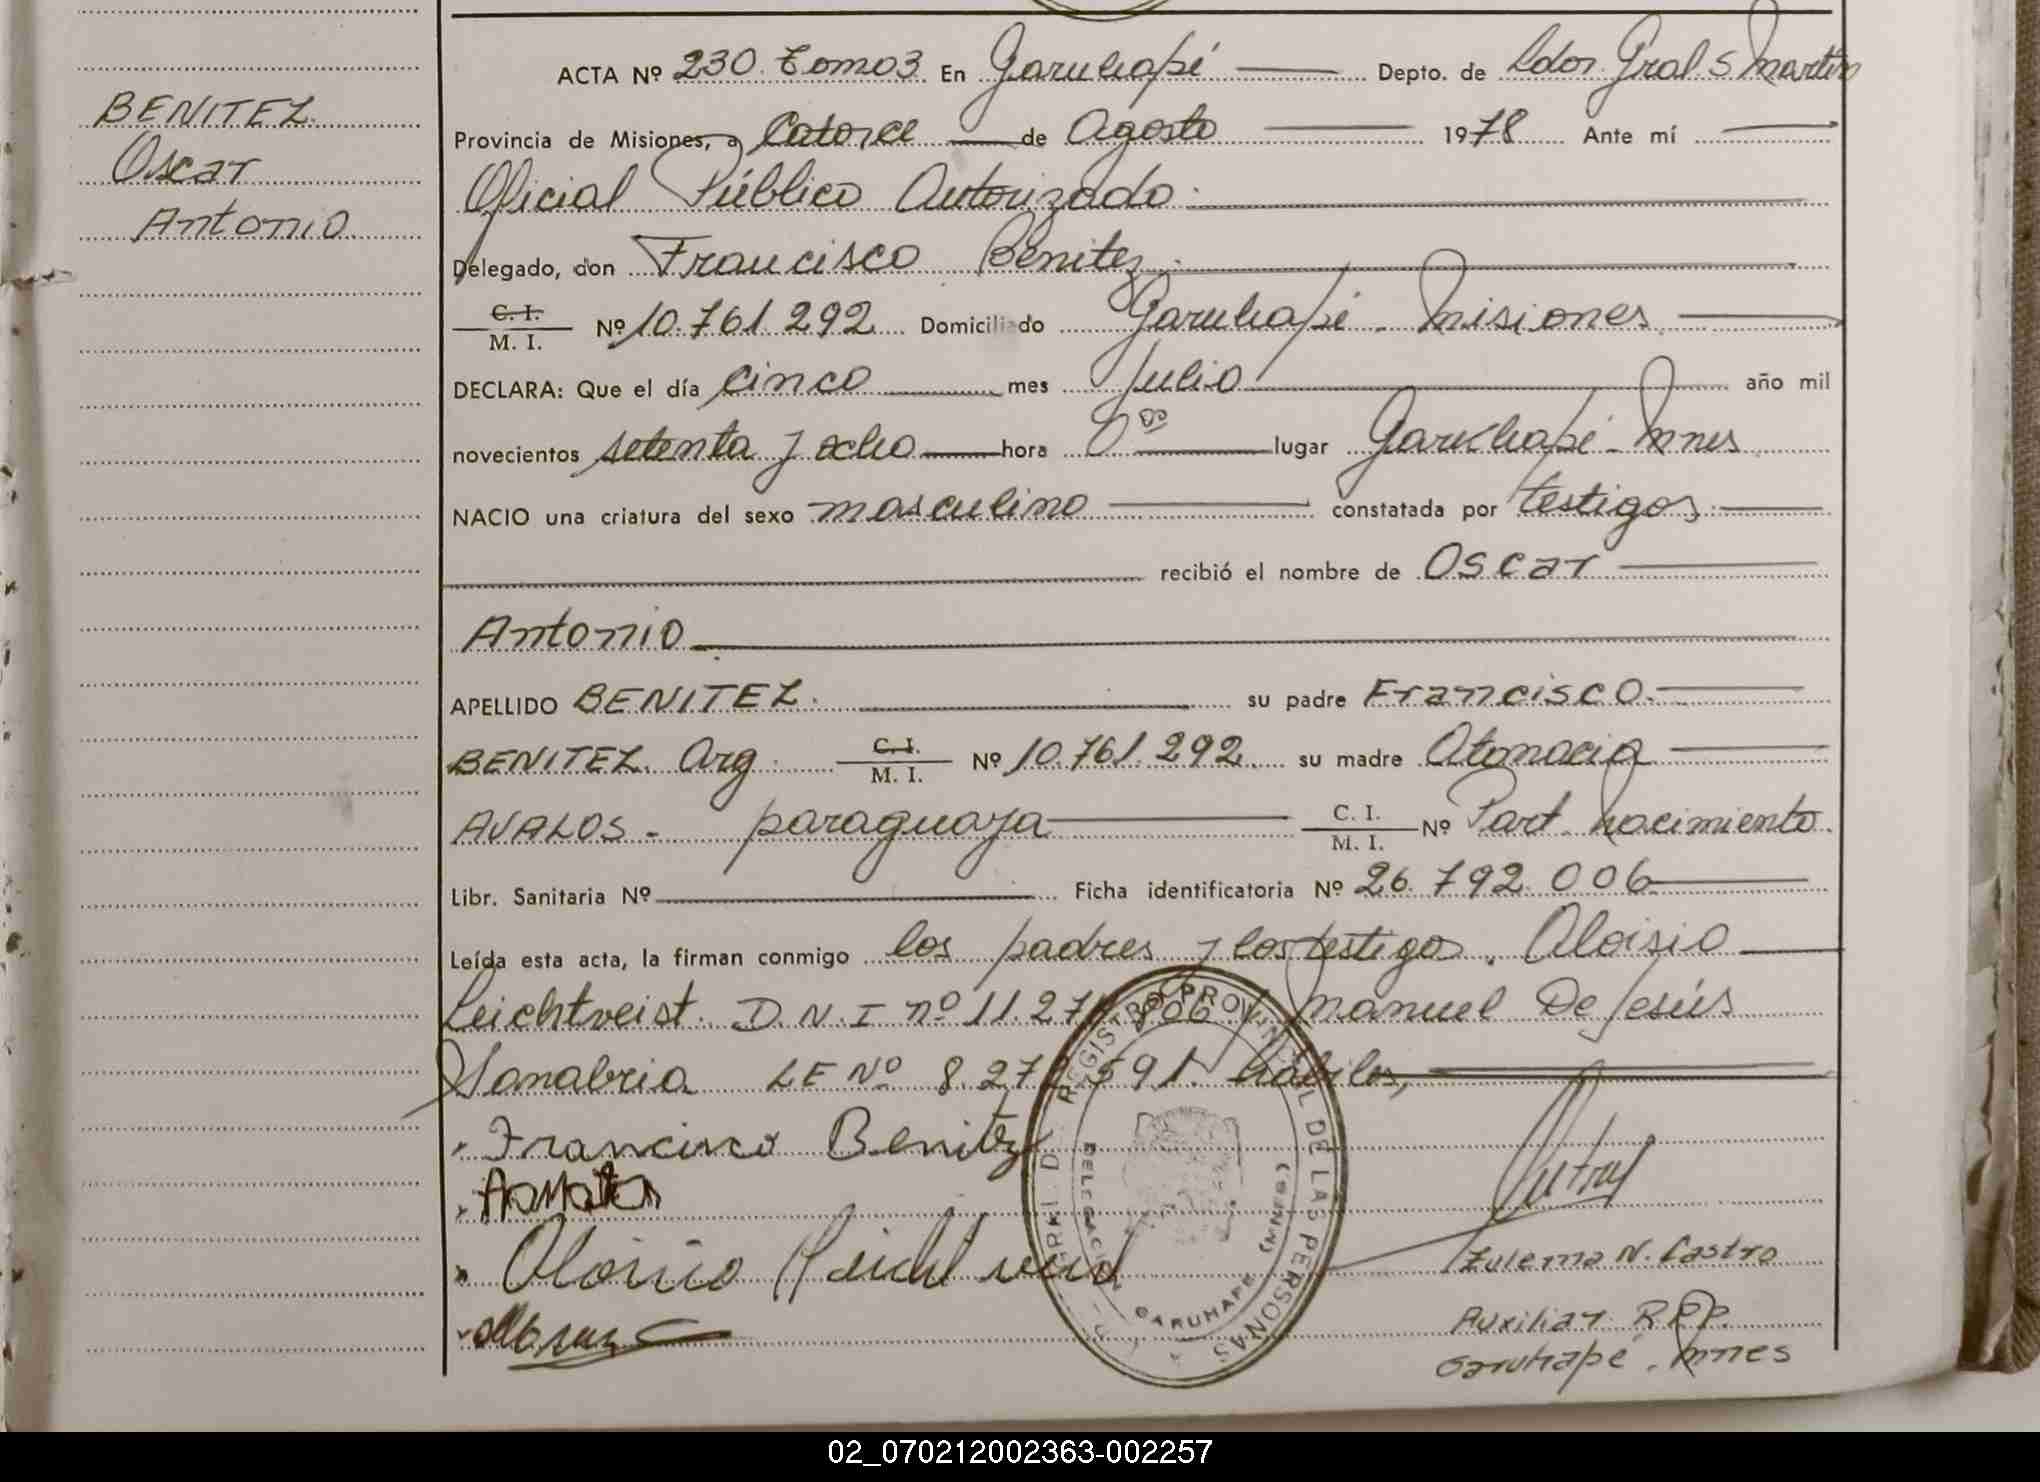 BENITEZ
Oscar
Antonio
ACTA Nº 230. Tomo 3 En Garuhapé Depto. de Ldor. Gral S Martin
Provincia de Misiones, a Catorce de Agosto 1978 Ante mí
Oficial Público Autorizado.
Delegado, don Francisco Benitez.
C. I. / M. I. Nº 10.761.292 Domiciliado Garuhapé. Misiones
DECLARA: Que el día cinco mes Julio año mil
novecientos setenta y ocho hora lugar Garuhapé - Mnes
NACIO una criatura del sexo masculino constatada por testigos
recibió el nombre de Oscar
Antonio
APELLIDO BENITEZ. su padre Francisco.
BENITEZ. Arg. C. I. / M. I. Nº 10.761.292 su madre Atonacia
AVALOS - paraguaya C. I. / M. I. Nº Part. Nacimiento.
Libr. Sanitaria Nº Ficha identificatoria Nº 26.792.006
Leída esta acta, la firman conmigo los padres y los testigos. Aloisio
Leichtveist. D.N.I nº 11.27 806 y Manuel De Jesús
Sanabria LE Nº 8.27 591. hábiles,
Francisco Benitez
Aloisio
Zulema N. Castro
Auxiliar R.P.P.
Garuhapé. Mnes
REGISTRO PROVINCIAL DE LAS PERSONAS
DELEGACION GARUHAPE (MNES)
02_070212002363-002257